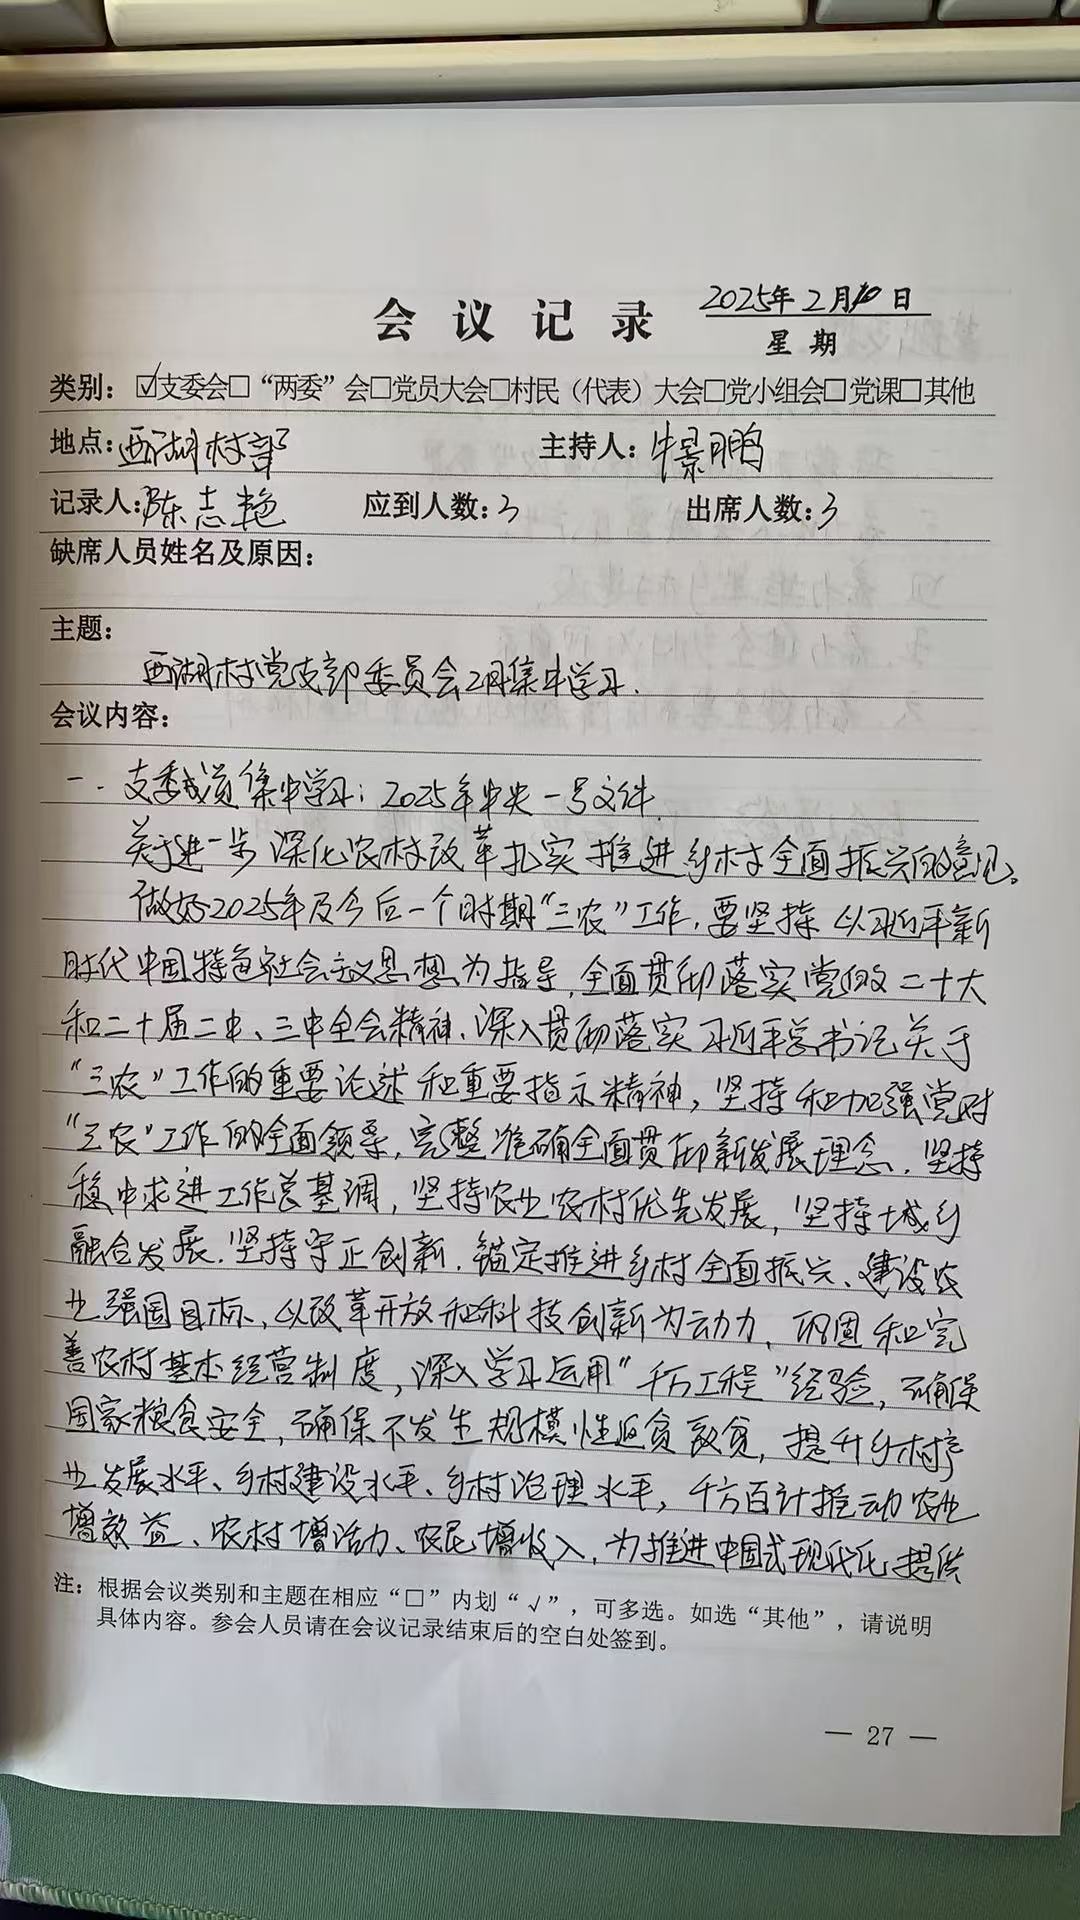 会议记录 2025年2月10日
星期
类别：☑支委会□“两委”会□党员大会□村民（代表）大会□党小组会□党课□其他
地点：西湖村部 主持人：牛景鹏
记录人：陈志艳 应到人数：3 出席人数：3
缺席人员姓名及原因：
主题：
西湖村党支部委员会2月集中学习.
会议内容：
一.支委成员集中学习：2025年中央一号文件.
关于进一步深化农村改革扎实推进乡村全面振兴的意见。
做好2025年及今后一个时期“三农”工作，要坚持以习近平新
时代中国特色社会主义思想为指导，全面贯彻落实党的二十大
和二十届二中、三中全会精神，深入贯彻落实习近平总书记关于
“三农”工作的重要论述和重要指示精神，坚持和加强党对
“三农”工作的全面领导，完整准确全面贯彻新发展理念，坚持
稳中求进工作总基调，坚持农业农村优先发展，坚持城乡
融合发展，坚持守正创新，锚定推进乡村全面振兴、建设农
业强国目标，以改革开放和科技创新为动力，巩固和完
善农村基本经营制度，深入学习运用“千万工程”经验，确保
国家粮食安全，确保不发生规模性返贫致贫，提升乡村产
业发展水平、乡村建设水平、乡村治理水平，千方百计推动农业
增效益、农村增活力、农民增收入，为推进中国式现代化提供
注：根据会议类别和主题在相应“□”内划“√”，可多选。如选“其他”，请说明
具体内容。参会人员请在会议记录结束后的空白处签到。
— 27 —